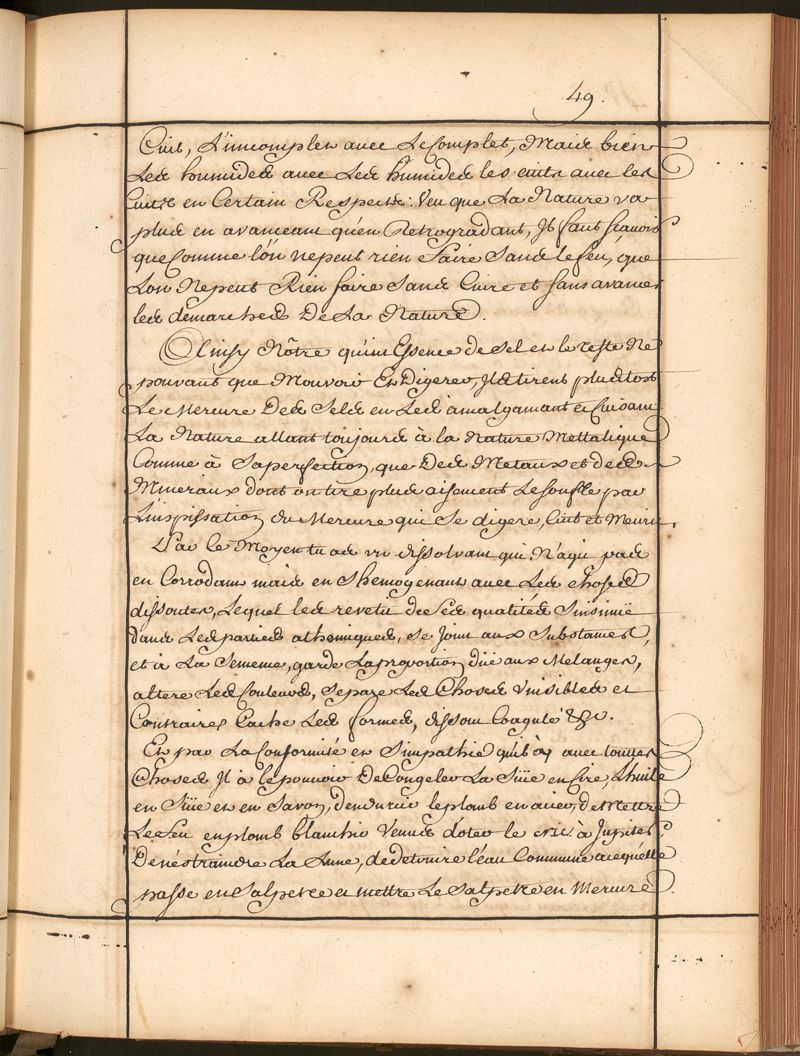 49.
Cuit, L'incomplet avec Le Complet, Mais bien
Les humides avec Les humides les cuits avec les
Cuits en Certain Respects: Veu que La Nature va
plus en avanceant qu'en Retrogradant, Il faut scavoir
que Comme l'on nepeut rien Faire Sans le feu, que
Lon Nepeut Rien faire Sans Cuire et sans avancer
les demarches De La Nature.
Ainsy Nôtre quint Essence de Sel et le reste Ne
pouvant que Mouvoir Et Digerer, Ils tirent plustost
Le Mercure Des Sels en Les amalgamant et Cuisant
La Nature allant toujours à la Nature Mettalique
Comme à Saperfection, que Des Metaux et des
Mineraux dont on tire plus aisement Le souffle par
L'inspissation du Mercure qui Se digere, Cuit et Meurit.
Par ce Moyen tu as un dissolvant qui N'agit pas
en Corrodant mais en Shemogenant avec Les Choses
dissoutes, Lequel les revetu de Ses qualités Sinsinüe
dans Les parties athomiques, se Joint aux Substances,
et à La Semence, garde La proportion düe aux Melanges,
altere Les Couleurs, Separe Les Choses Visibles et
Contraires Cache Les formes, dissout Coagule &c.
Et par La Conformité et Simpathie qu'il à avec toutes
Choses Il à le pouvoir De Congeler La Süie en Cire, L'huile
en Süie et en Savon, d'endurcir le plomb en acier, de Mettre
Le Feu en plomb blanchir Venus d'oter le cric à Jupiter
De Lune, de detruire l'eau Commune ace qu'elle
passe en Salpetre et mettre Le Salpetre en Mercure.